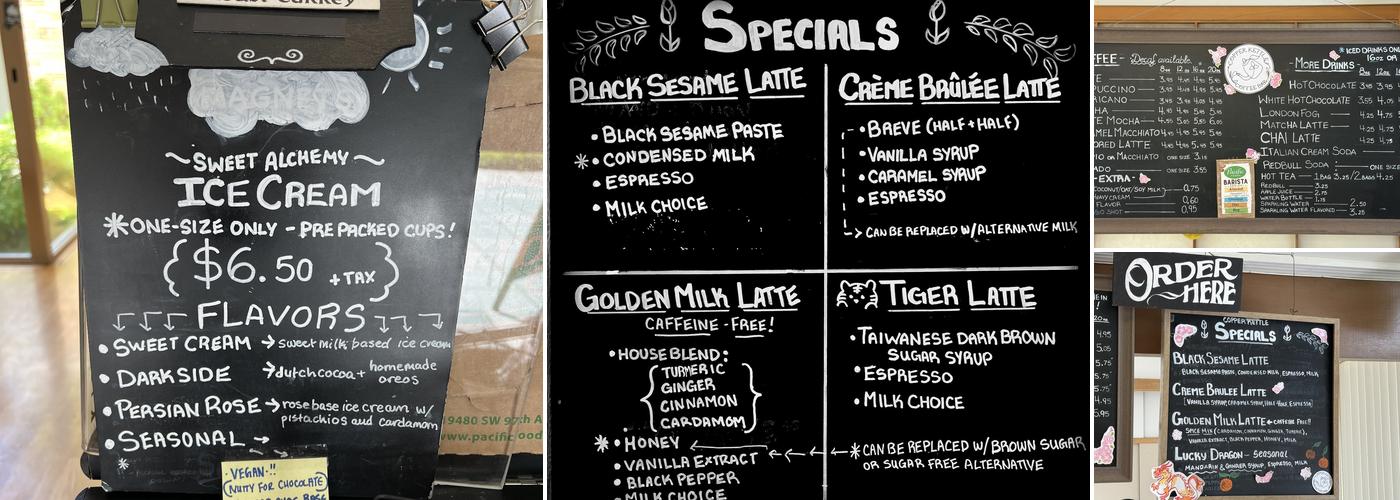 SWEET ALCHEMY
ICE CREAM
*ONE-SIZE ONLY - PREPACKED CUPS!
$6.50 +TAX
FLAVORS
• SWEET CREAM → sweet milk based ice cream
• DARKSIDE → dutch cocoa + homemade oreos
• PERSIAN ROSE → rose base ice cream w/ pistachios and cardamom
• SEASONAL →
*
- VEGAN-!!
NUTTY FOR CHOCOLATE
9480 SW 97th A
www.pacific
SPECIALS
BLACK SESAME LATTE
• BLACK SESAME PASTE
*• CONDENSED MILK
• ESPRESSO
• MILK CHOICE
CRÈME BRÛLÉE LATTE
• BREVE (HALF+HALF)
• VANILLA SYRUP
• CARAMEL SYRUP
• ESPRESSO
→ CAN BE REPLACED W/ALTERNATIVE MILK
GOLDEN MILK LATTE
CAFFEINE-FREE!
• HOUSE BLEND:
TURMERIC
GINGER
CINNAMON
CARDAMOM
*• HONEY
• VANILLA EXTRACT
• BLACK PEPPER
• MILK CHOICE
TIGER LATTE
• TAIWANESE DARK BROWN
SUGAR SYRUP
• ESPRESSO
• MILK CHOICE
*CAN BE REPLACED W/ BROWN SUGAR
OR SUGAR FREE ALTERNATIVE
FFEE - Decaf available
PUCCINO
RICANO
HA
TE MOCHA
AMEL MACCHIATO
ORED LATTE
IO OR MACCHIATO ONE SIZE 3.15
ADO ONE SIZE 3.55
-EXTRA-
COCONUT/OAT/SOY MILK 0.75
HAVY CREAM 0.60
FLAVOR
SO SHOT 0.95
COPPER KETTLE
BARISTA
* ICED DRINKS ON
16oz OR
- MORE DRINKS -
HOT CHOCOLATE
WHITE HOT CHOCOLATE
LONDON FOG
MATCHA LATTE
CHAI LATTE
ITALIAN CREAM SODA
REDBULL SODA ONE SIZE
HOT TEA 1 BAG 3.25/2 BAGS 4.25
REDBULL - 3.25
APPLE JUICE - 2.75
WATER BOTTLE - 1.75
SPARKLING WATER 2.50
SPARKLING WATER FLAVORED 3.25
ORDER
HERE
COPPER KETTLE
SPECIALS
BLACK SESAME LATTE
BLACK SESAME PASTE, CONDENSED MILK, ESPRESSO, MILK
CREME BRULEE LATTE
(VANILLA SYRUP, CARAMEL SYRUP, HALF+HALF, ESPRESSO)
GOLDEN MILK LATTE CAFFEINE FREE!!
SPICE MIX (CARDAMOM, CINNAMON, GINGER, TUMERIC),
VANILLA EXTRACT, BLACK PEPPER, HONEY, MILK
LUCKY DRAGON - Seasonal
MANDARIN & GINGER SYRUP, ESPRESSO, MILK